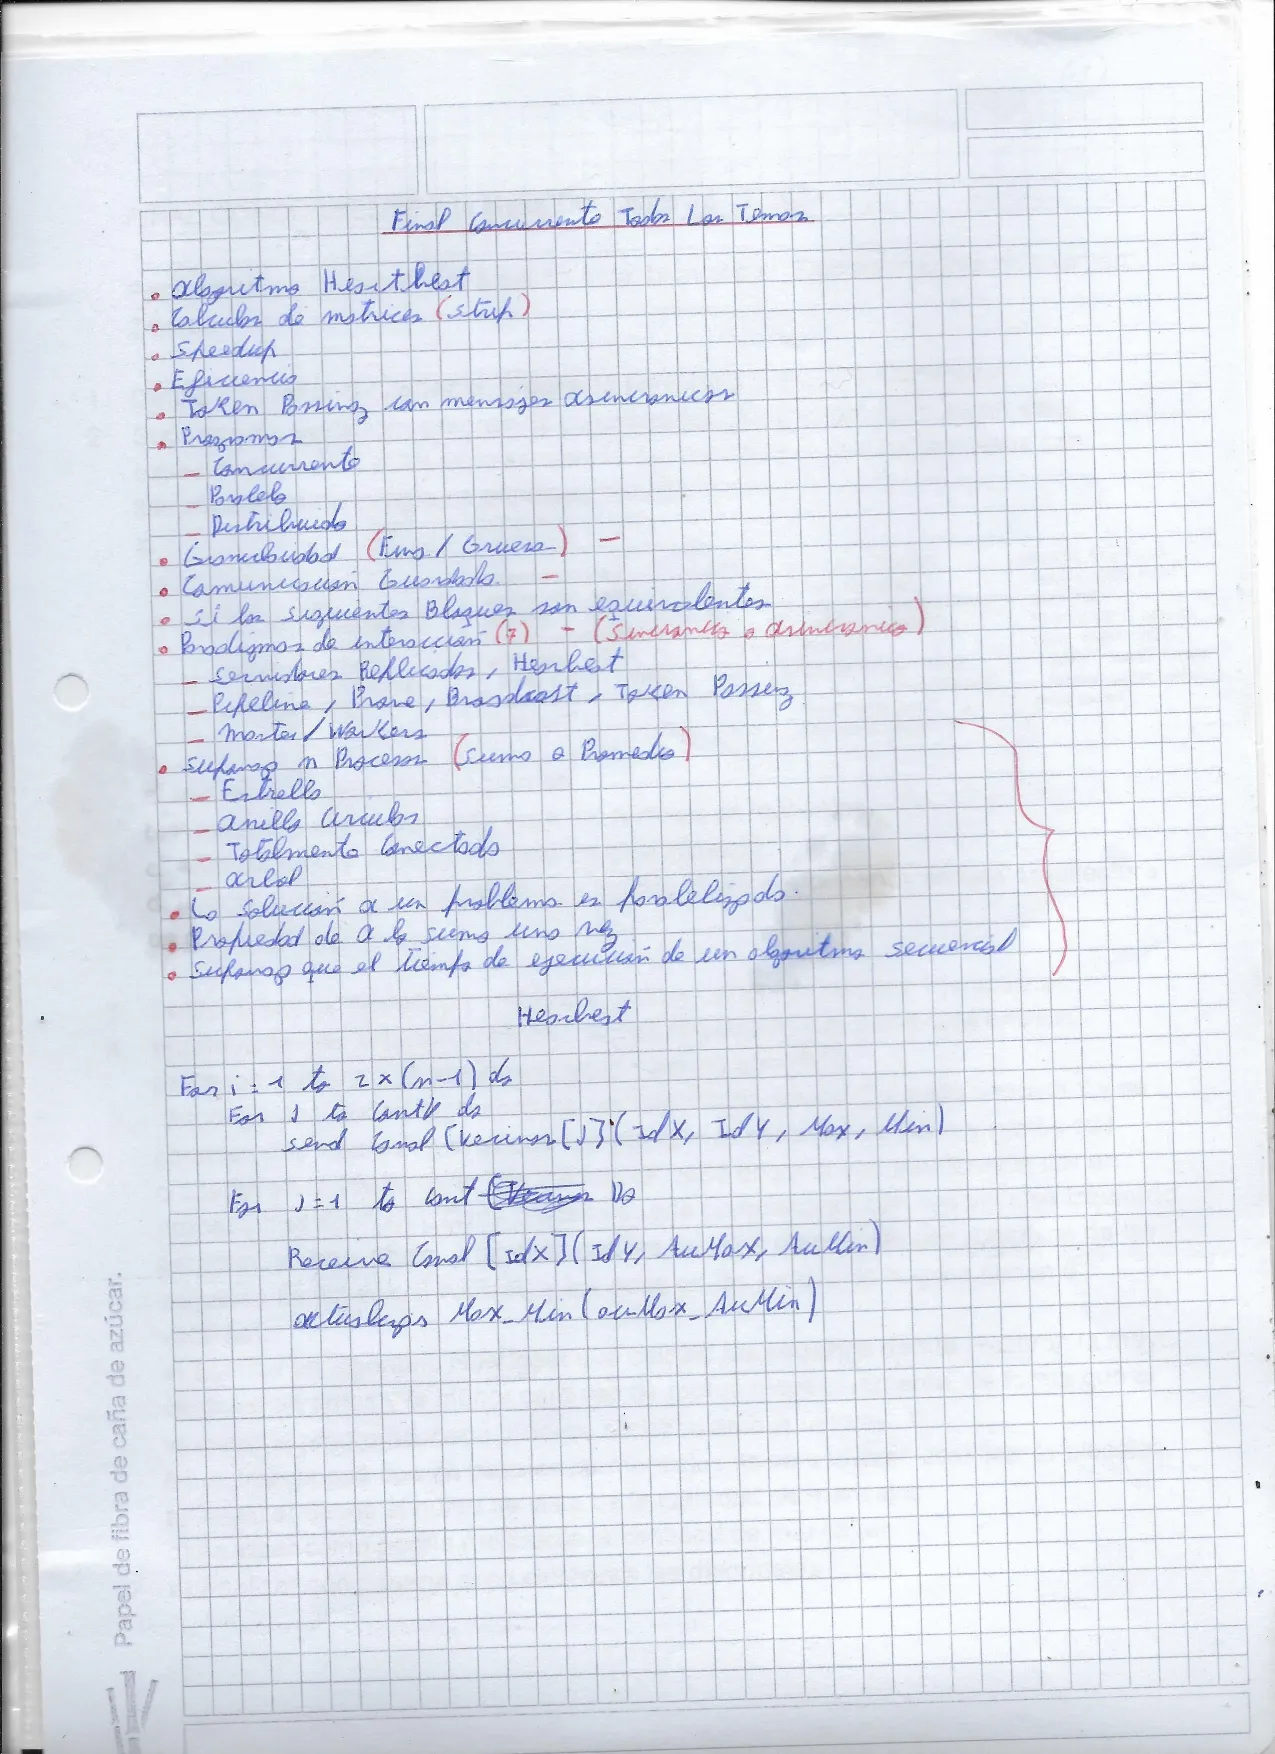 Final Concurrente Todos Los Temas
• Algoritmo Heartbeat
• Calculos de matrices (strip)
• Speedup
• Eficiencia
• Token Passing con mensajes Asincronicos
• Programas
– Concurrente
– Paralelo
– Distribuido
• Granularidad (Fina / Gruesa) –
• Comunicación Guardada –
• Si los siguientes Bloques son equivalentes
• Paradigmas de interacción (7) – (Sincronico o Asincronico)
– Servidores Replicados, Hearbeat
– Pipeline, Prove, Broadcast, Token Passing
– Master / Workers
• Suponga n Procesos (Suma o Promedio)
– Estrella
– Anillo Circular
– Totalmente Conectado
– Arbol
• La solución a un problema es paralelizado.
• Propiedad de A lo sumo una vez
• Suponga que el tiempo de ejecución de un algoritmo secuencial
Hearbeat
For i = 1 to 2 x (n-1) do
For J to CantV do
send Canal [Vecinos [J]] (IdX, IdY, Max, Min)
For J = 1 to Cant Do
Receive Canal [IdX] (IdY, AuxMax, AuxMin)
Max_Min (auxMax_AuxMin)
Papel de fibra de caña de azúcar.